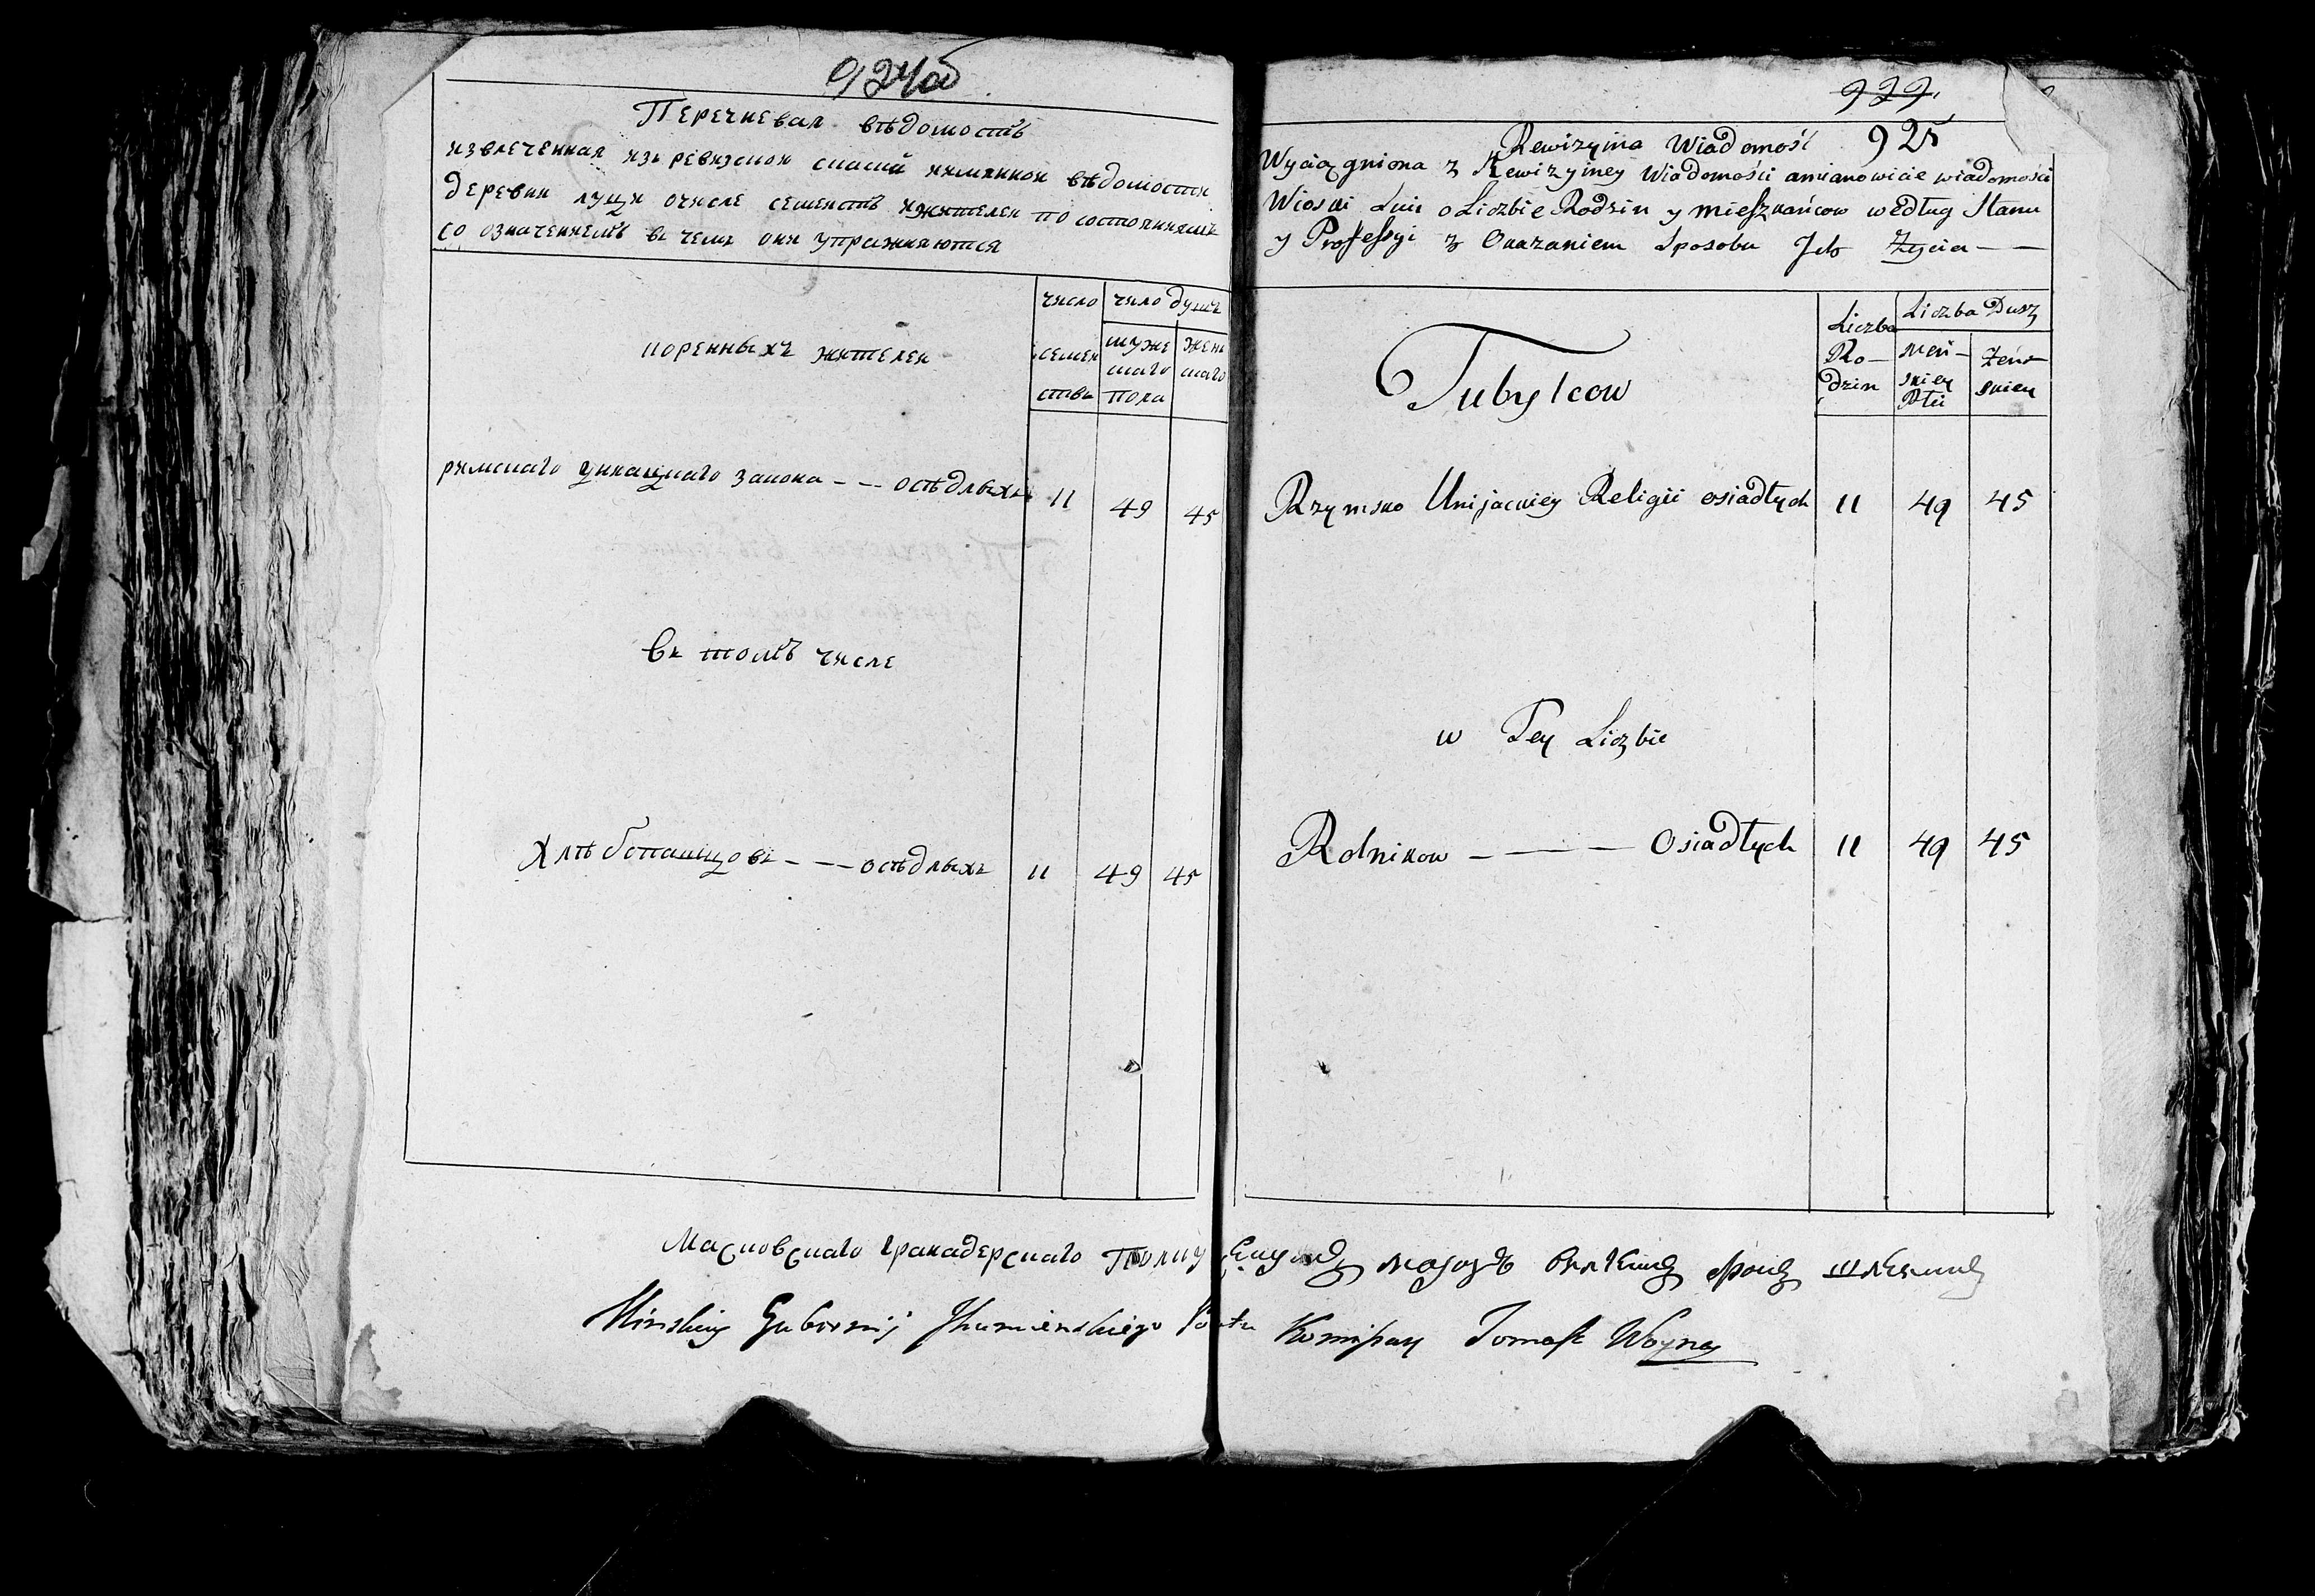 924об
Перечневая вѣдомость
извлеченная изъ ревизской имянной вѣдомости
деревни Луци о числе семействъ и жителей по состояниямъ
со означениемъ въ чемъ они упражняются
коренныхъ жителей
число
семей
ства
число душъ
муже
скаго
пола
жен
скаго
римскаго униацкаго закона - - - осѣдлыхъ 11 49 45
въ томъ числе
Хлѣбопашцовъ - - - осѣдлыхъ 11 49 45
929.
925
Rewizyina Wiadomość
Wyciągniona z Rewizyiney Wiadomości amianowicie wiadomości
Wioski o Liczbie Rodzin y mieszkańcow według Stanu
y Professyi z Okazaniem Sposobu Ich Życia - -
Tubylcow
Liczba
Ro-
dzin
Liczba Dusz
Męń-
skiey
Płci
Żeńs-
kiey
Rzymsko Unijackiey Religii osiadłych 11 49 45
w Tey Liczbie
Rolnikow - - - Osiadłych 11 49 45
Московскаго Гранадерскаго Полку
Minskiey Gubernij Jhumenskiego Ptu Komissarz Tomasz Woyna